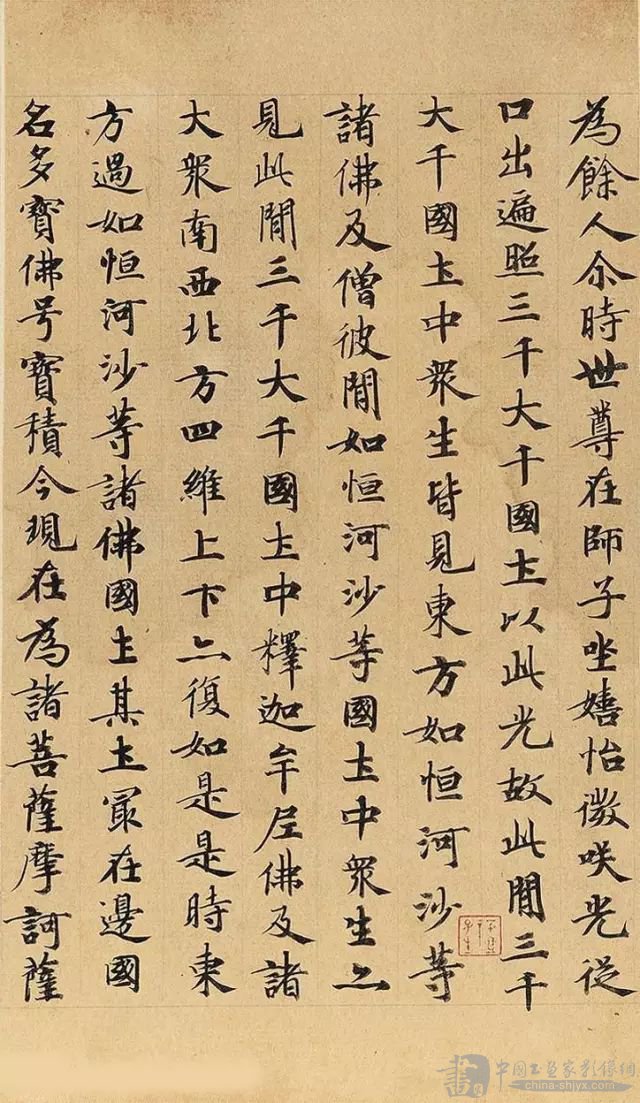 為餘人尒時世尊在師子坐嬉怡微咲光從
口出遍照三千大千國土以此光故此閒三千
大千國土中衆生皆見東方如恒河沙等
諸佛及僧彼閒如恒河沙等國土中衆生亦
見此閒三千大千國土中釋迦牟尼佛及諸
大衆南西北方四維上下亦復如是是時東
方過如恒河沙等諸佛國土其土冣在邊國
名多寶佛号寶積今現在為諸菩薩摩訶薩
中国书画家影像網
china-shjyx.com